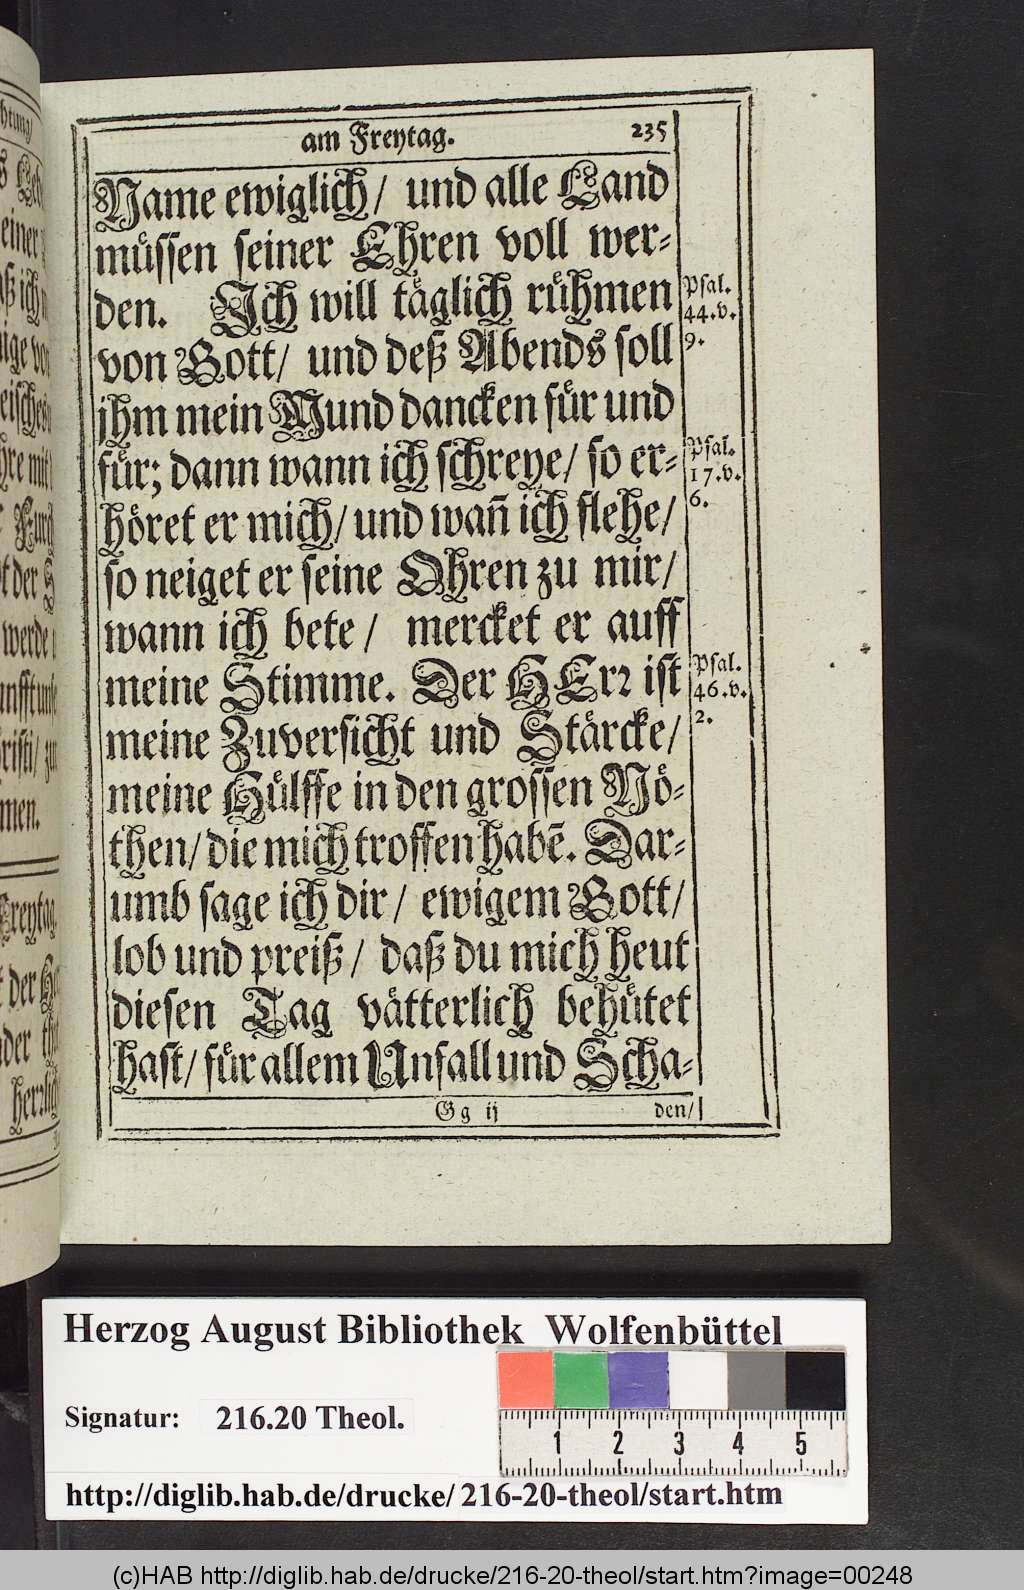 am Freytag. 235
Name ewiglich/ und alle Land
müssen seiner Ehren voll wer-
den. Ich will täglich rühmen
von Gott/ und deß Abends soll
jhm mein Mund dancken für und
für; dann wann ich schreye/ so er-
höret er mich/ und wañ ich flehe/
so neiget er seine Ohren zu mir/
wann ich bete/ mercket er auff
meine Stimme. Der HErꝛ ist
meine Zuversicht und Stärcke/
meine Hülffe in den grossen Nö-
then/ die mich troffen habẽ. Dar-
umb sage ich dir/ ewigem Gott/
lob und preiß/ daß du mich heut
diesen Tag vätterlich behütet
hast/ für allem Unfall und Scha-
Gg ij den/
Psal.
44.v.
9.
Psal.
17.v.
6.
Psal.
46.v.
2.
Herzog August Bibliothek Wolfenbüttel
Signatur: 216.20 Theol.
1 2 3 4 5
http://diglib.hab.de/drucke/ 216-20-theol/start.htm
(c)HAB http://diglib.hab.de/drucke/216-20-theol/start.htm?image=00248